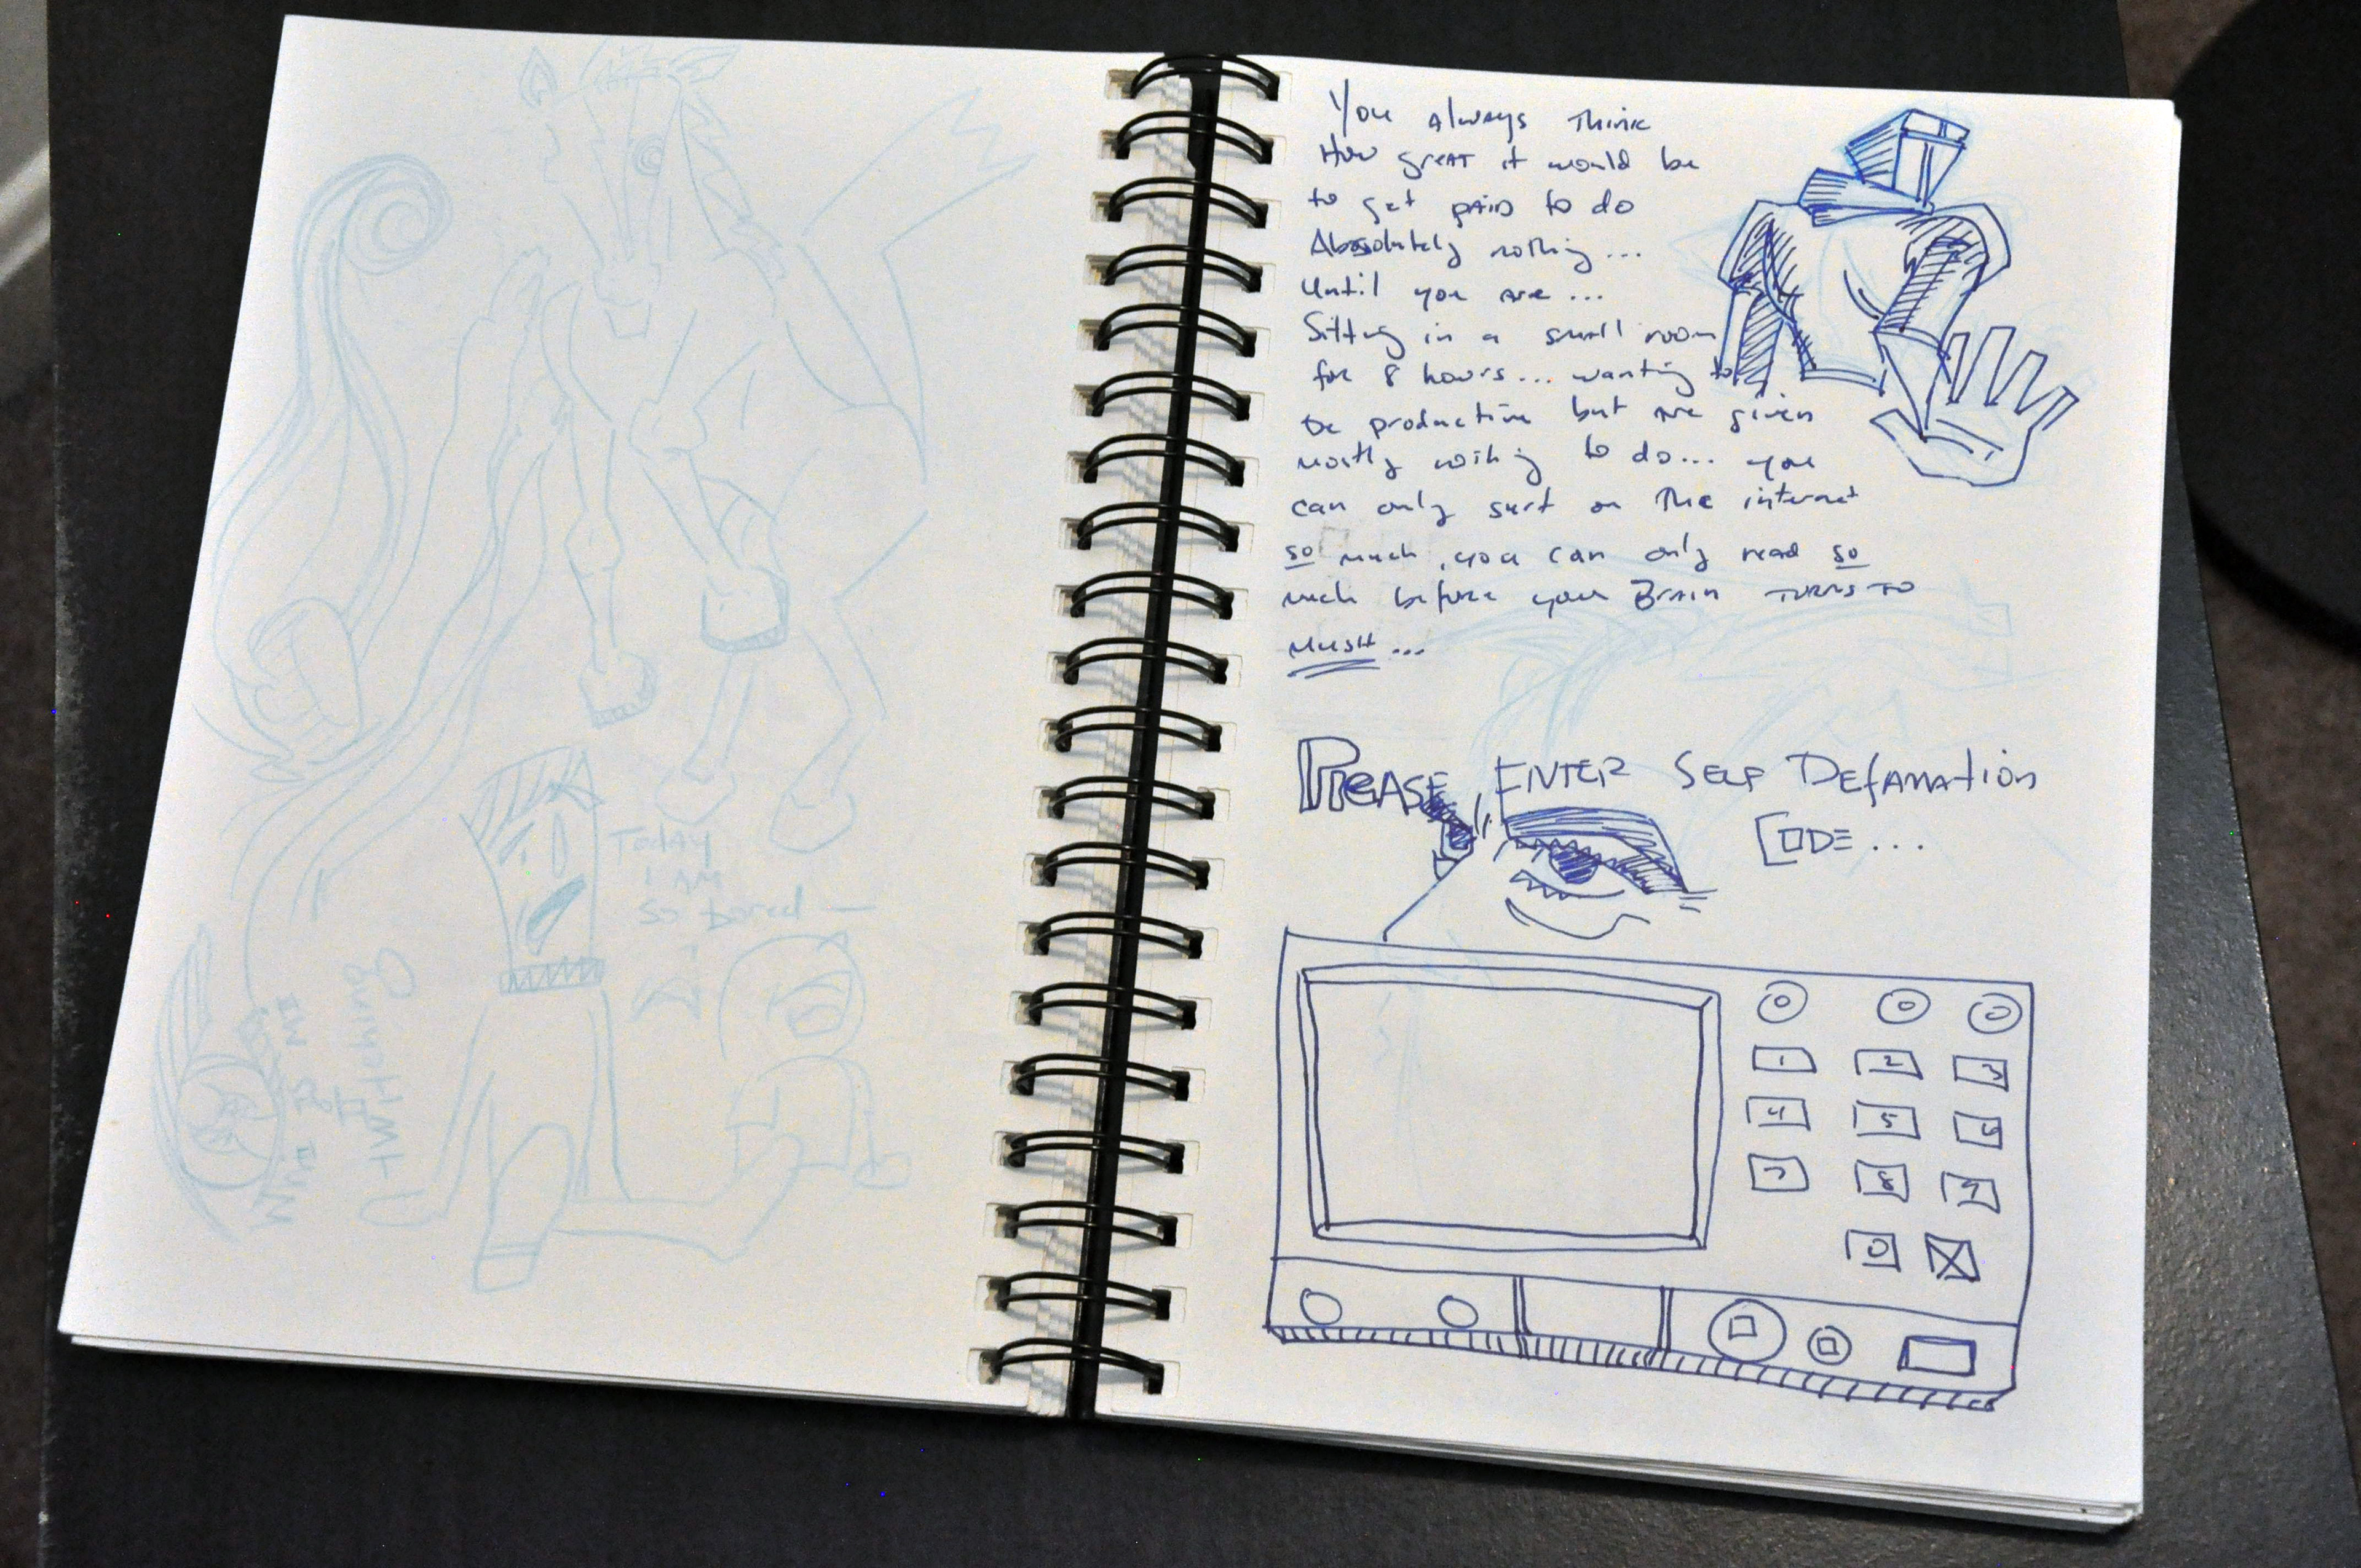 Today
I AM
so bored —
Why is my
I
twitching
You Always Think
How great it would be
to get paid to do
Absolutely nothing...
Until you are...
Sitting in a small room
for 8 hours... wanting to
be productive but are given
mostly nothing to do... you
can only surf on The internet
so much, you can only read so
much before your Brain TURNS TO
MUSH...
PLEASE, ENTER SELF Defamation
CODE...
1 2 3
4 5 6
7 8 9
0